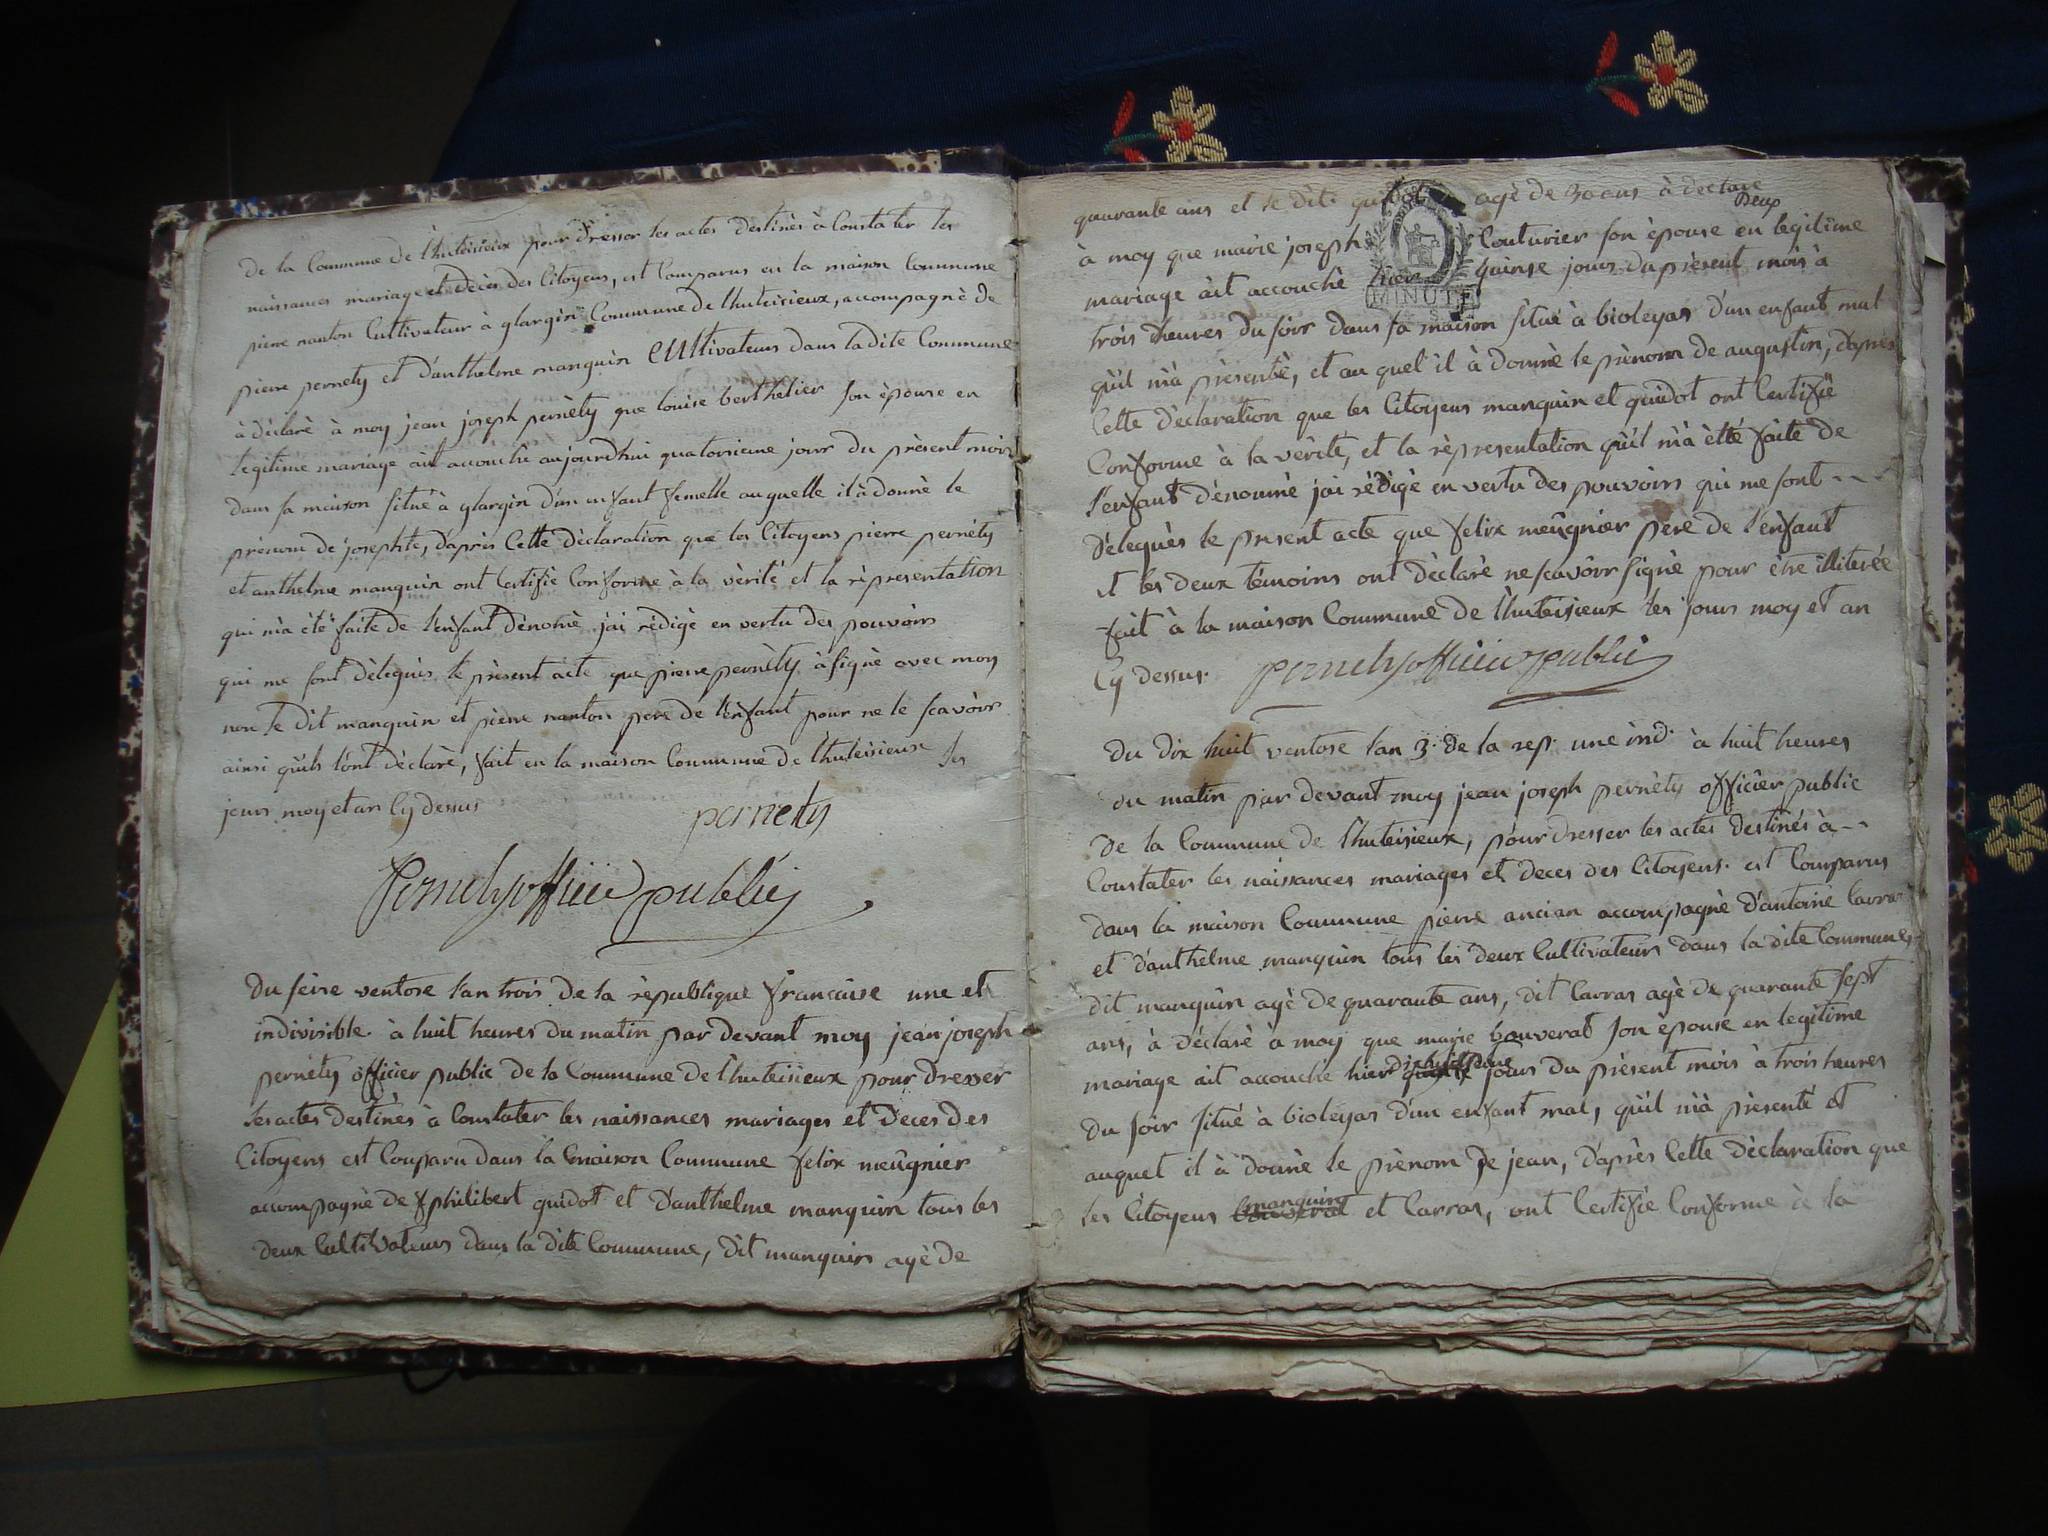 de la Commune de l'huteisieux pour dresser les actes destinés à Constater les
naissances mariage et décès des Citoyens, est Comparus en la maison Commune
pierre nanton Cultivateur à glargin Commune de l'huteisieux, accompagné de
pierre pernety et d'anthelme manguin Cultivateurs dans la dite Commune
à déclaré à moy jean joseph pernèty que louise berthelier son épouse en
legitime mariage ait accouchè aujourdhui quatorsieme jour du prèsent mois
dans sa maison situé à glargin d'un enfant femelle auquelle il à donnè le
prènom de josephte, d'après Cette dèclaration que les Citoyens pierre pernèty
et anthelme manguin ont Certifiè Conforme à la vèritè et la rèpresentation
qui m'a étè faite de l'enfant dènomè j'ai rèdigè en vertu des pouvoirs
qui me sont dèleguès le prèsent acte que pierre pernèty à signè avec moy
non le dit manguin et pierre nanton pere de l'enfant pour ne le scavoir
ainsi qu'ils l'ont dèclarè, fait en la maison Commune de l'huteisieux les
jours moy et an Cy dessus pernety
Pernety officier public
Du seise ventose l'an trois de la rèpublique francaise une et
indivisible à huit heures du matin par devant moy jean joseph
pernèty officier public de la Commune de l'huteisieux pour dresser
les actes destinès à Constater les naissances mariages et deces des
Citoyens est Comparu dans la maison Commune felix meûgnier
accompagnè de philibert guidot et d'anthelme manguin tous les
deux Cultivateurs dans la dite Commune, dit manguin agè de
quarante ans et le dit guidot agè de 30 ans à declare
deux
à moy que marie joseph Couturier son èpouse en legitime
mariage ait accouchè hier quinse jours du prèsent mois à
MINUTE
trois heures du soir dans sa maison situé à bioleyas d'un enfant mal
qu'il m'à prèsentè, et au quel il à donnè le prènom de augustin, d'après
Cette dèclaration que les Citoyens manguin et guidot ont Certifiè
Conforme à la vèritè, et la rèpresentation qu'il m'a ètté faite de
l'enfant dènomè j'ai rédigè en vertu des pouvoirs qui me sont - - -
dèleguès le present acte que felix meûgnier père de l'enfant
et les deux tèmoins ont dèclarè ne scavoir signè pour ètre illiterèe
fait à la maison Commune de l'huteisieux les jours moy et an
Cy dessus. pernety officier public
Du dix huit ventose l'an 3. de la rep. une ind. à huit heures
du matin par devant moy jean joseph pernèty officier public
de la Commune de l'huteisieux, pour dresser les actes destinés à - -
Constater les naissances mariages et deces des Citoyens. est Comparus
dans la maison Commune pierre ancian accompagnè d'antoine Carras
et d'anthelme manguin tous les deux Cultivateurs dans la dite Commune,
dit manguin agè de quarante ans, dit Carras agè de quarante sept
ans, à dèclarè à moy que marie bouverat son èpouse en legitime
mariage ait accouchè hier jours du prèsent mois à trois heures
du soir situé à bioleyas d'un enfant mal, qu'il m'à prèsenté et
auquel il à donnè le prènom de jean, d'après Cette dèclaration que
manguin
les Citoyens bouverat et Carras, ont Certifiè Conforme à la